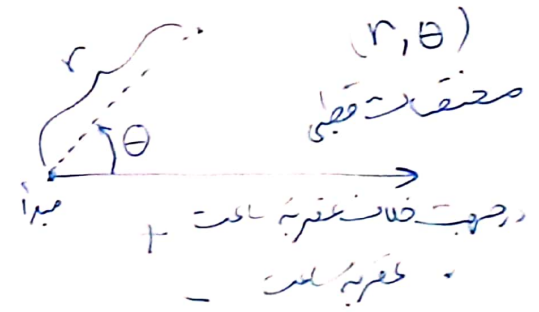 r
(r, θ)
مختصات قطبی
θ
مبدأ
در جهت خلاف عقربه ساعت +
" عقربه ساعت -